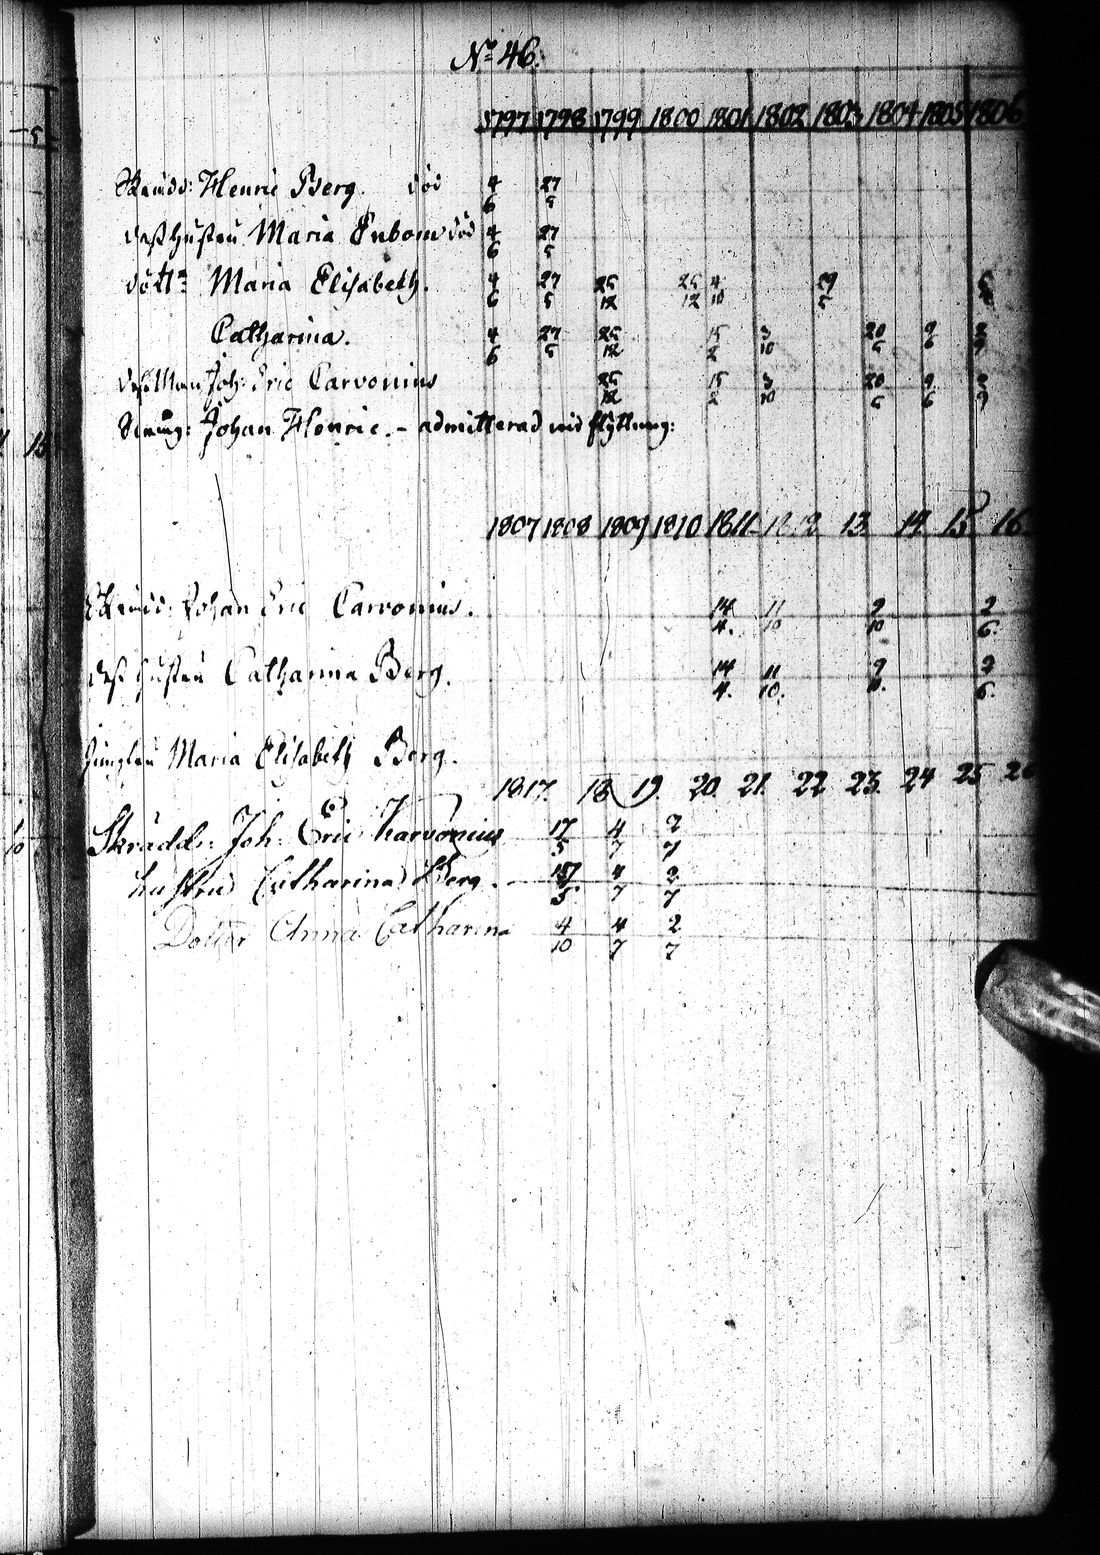 No 46.
1797 1798 1799 1800 1801 1802 1803 1804 1805 1806
Henric Berg död 4/6 27/5
dess hustru Maria Enbom död 4/6 27/5
döttr Maria Elisabeth. 4/6 27/5 25/12 25/12 4/10
Catharina. 4/6 27/5 25/12 15/2 3/10 20/6 9/6
dess Man Joh: Eric Carvonius 25/12 15/2 3/10 20/6 9/6
Johan Henric. - admitterad vid flyttning:
1807 1808 1809 1810 1811 1812 13. 14. 15. 16.
Johan Eric Carvonius. 14/4. 11/10 9/10 2/6.
dess hustru Catharina Berg. 14/4. 11/10. 9 2/6.
Jungfru Maria Elisabeth Berg.
1817. 18 19. 20. 21. 22 23. 24 25 26
Skrädd: Joh: Eric Karvonius 17/5 4/7 2/7
hustru Catharina Berg. 17/5 4/7 2/7
Dotter Anna Catharina 4/10 4/7 2/7